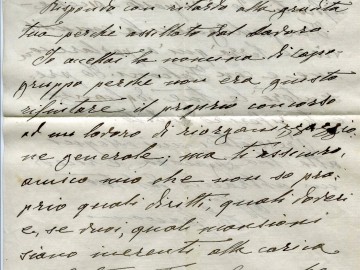 Rispondo con ritardo alla gradita
tua perchè assillato dal lavoro.
Io accettai la nomina di capo-
gruppo perchè non era giusto
rifiutare il proprio concorso
ad un lavoro di riorganizzazio-
ne generale; ma ti assicuro,
amico mio che non so pro-
prio quali diritti, quali doveri
e, se vuoi, quali mansioni
siano inerenti alla carica